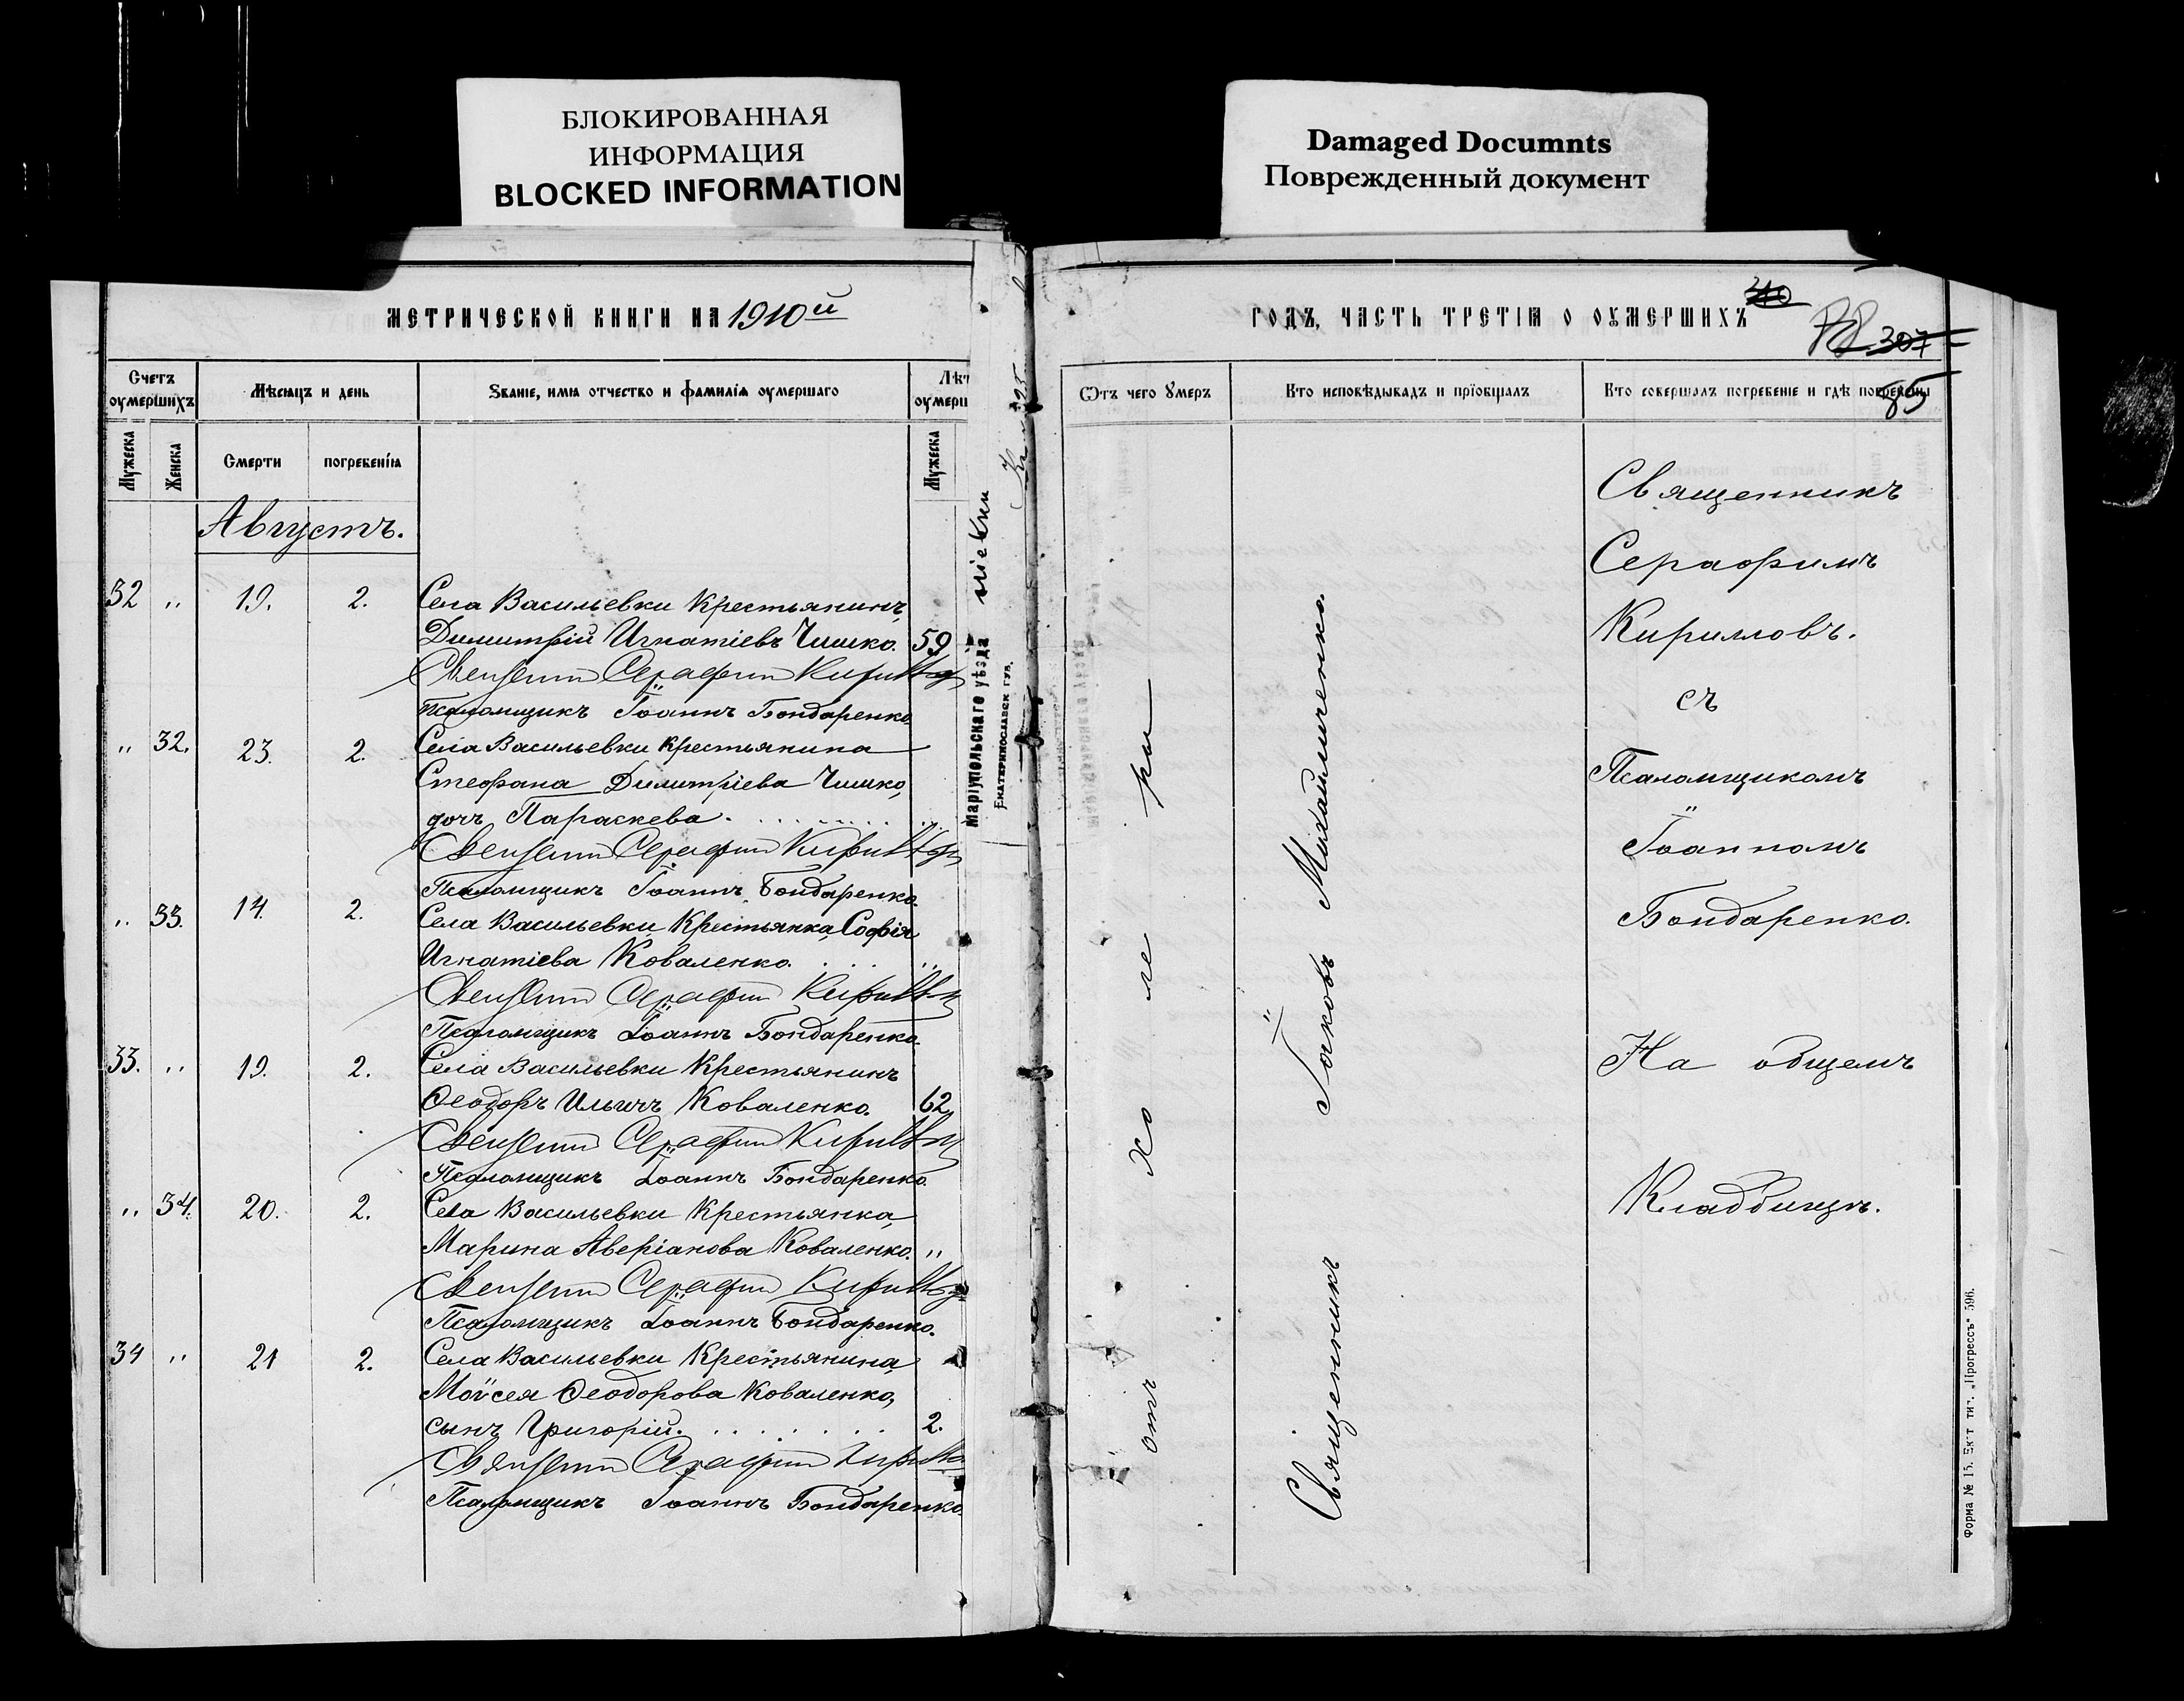 БЛОКИРОВАННАЯ
ИНФОРМАЦИЯ
BLOCKED INFORMATION
Damaged Documnts
Поврежденный документ
МЕТРИЧЕСКОЙ КНИГИ НА 1910й
Счетъ оумершихъ
Мѣсяцъ и день
Званіе, имя отчество и фамилія оумершаго
Лѣт
оумерш
Мужеска
Женска
Смерти
погребенія
Мужеска
Августъ.
32 " 19. 2. Села Васильевки Крестьянинъ,
Димитрій Игнатіевъ Чишко. 59
Священникъ Серафим Кириллов
Псаломщикъ Іоаннъ Бондаренко
" 32. 23. 2. Села Васильевки крестьянина
Стефана Димитріева Чишко,
дочь Параскева. "
Священникъ Серафим Кириллов
Псаломщикъ Іоаннъ Бондаренко.
" 33. 14. 2. Села Васильевки Крестьянка, Софія
Игнатіева Коваленко. "
Священникъ Серафим Кириллов
Псаломщикъ Іоаннъ Бондаренко.
33. " 19. 2. Села Васильевки Крестьянинъ
Ѳеодоръ Ильичъ Коваленко. 62
Священникъ Серафим Кириллов
Псаломщикъ Іоаннъ Бондаренко.
" 34. 20. 2. Села Васильевки Крестьянка,
Марина Аверіанова Коваленко. "
Священникъ Серафим Кириллов
Псаломщикъ Іоаннъ Бондаренко.
34 " 21 2. Села Васильевки Крестьянина,
Моѵсея Ѳеодорова Коваленко,
сынъ Григорій. 2.
Священникъ Серафим Кириллов
Псаломщикъ Іоаннъ Бондаренко.
Маріупольскаго уѣзда
Екатеринославск. губ.
ГОДЪ, ЧАСТЬ ТРЕТІЯ О ОУМЕРШИХЪ
310
307
85
Ѿтъ чего умеръ
Кто исповѣдывалъ и пріобщалъ
Кто совершалъ погребеніе и гдѣ погребены
отъ холеры
Священникъ Іаковъ Михайличенко.
Священникъ
Серафимъ
Кирилловъ.
съ
Псаломщикомъ
Іоанномъ
Бондаренко.
На общемъ
Кладбищѣ.
Форма № 15. Ек-т. тип. „Прогрессъ" 596.